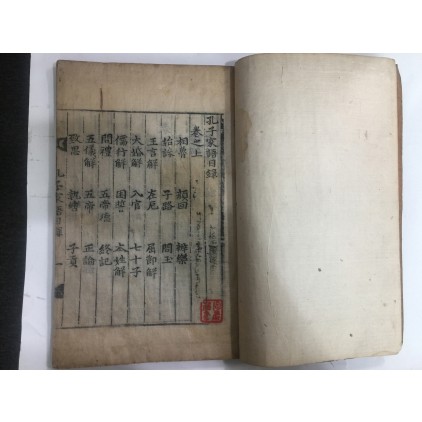 孔子家語目錄
卷之上
相魯 顏回 辨樂
始誅 子路 問玉
王言解 在厄 屈節解
大婚解 入官 七十子
儒行解 困誓 本姓解
問禮 五帝德 終記
五儀解 五帝 正論
致思 執轡 子貢
孔子家語目錄 一